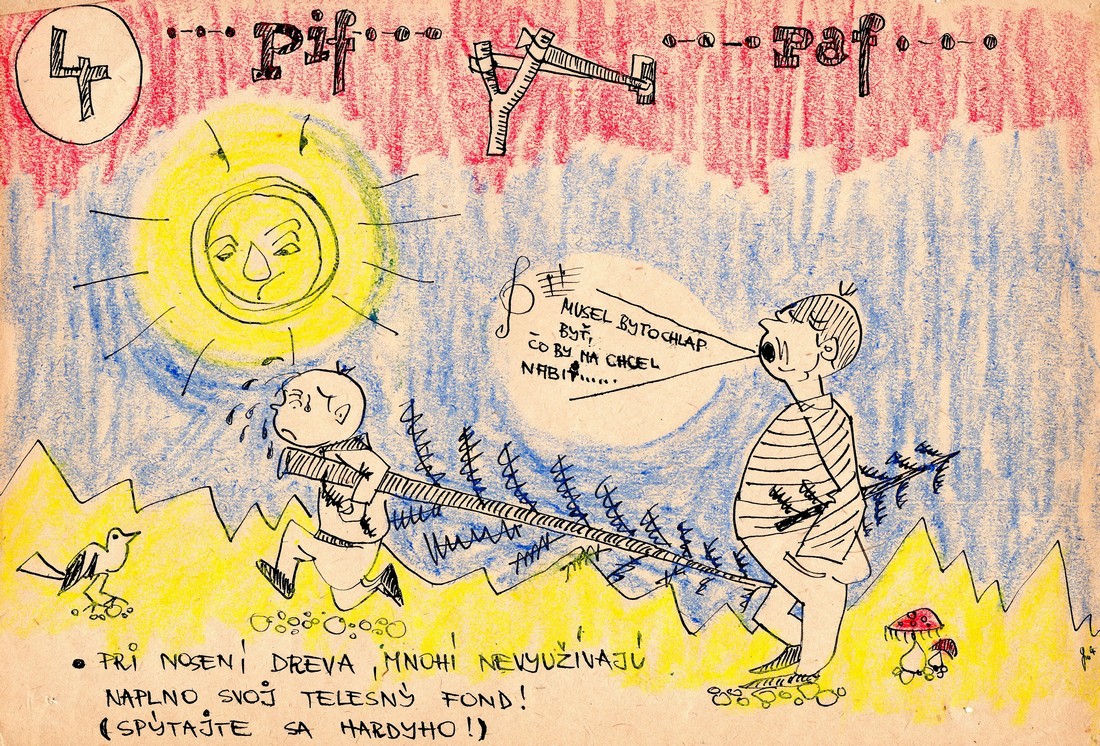 4
Pif Paf
MUSEL BY TO CHLAP
BYŤ,
ČO BY MA CHCEL
NABIŤ.....
• PRI NOSENÍ DREVA, MNOHÍ NEVYUŽÍVAJÚ
NAPLNO SVOJ TELESNÝ FOND!
(SPÝTAJTE SA HARDYHO!)